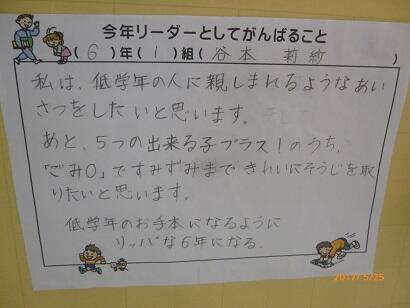 今年リーダーとしてがんばること
(6)年(1)組(谷本 莉紗)
私は、低学年の人に親しまれるようなあい
さつをしたいと思います。
あと、5つの出来る子プラス1のうち、
「ごみ0」ですみずみまできれいにそうじを取
りたいと思います。
低学年のお手本になるように
リッパな6年になる.
2017/5/25